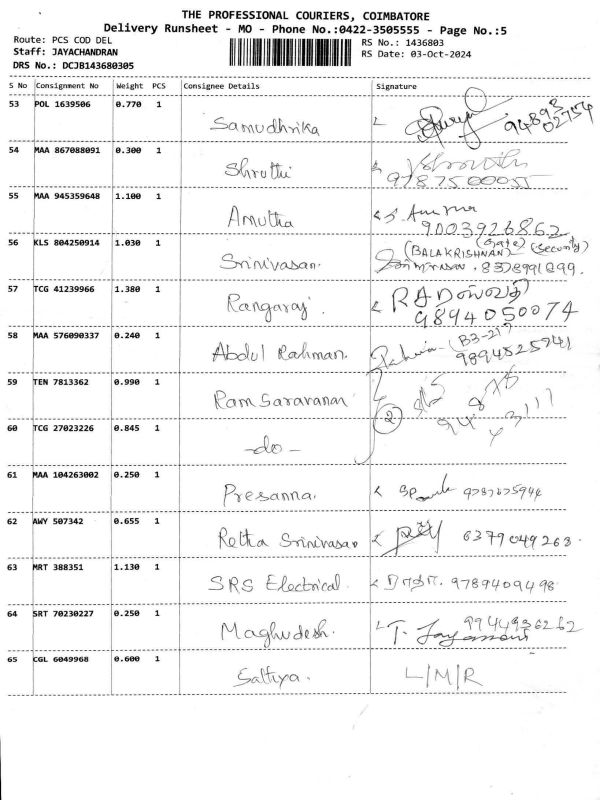 THE PROFESSIONAL COURIERS, COIMBATORE
Delivery Runsheet - MO - Phone No.:0422-3505555 - Page No.:5
Route: PCS COD DEL
Staff: JAYACHANDRAN
DRS No.: DCJB143680305
RS No.: 1436803
RS Date: 03-Oct-2024
S No Consignment No Weight PCS Consignee Details Signature
53 POL 1639506 0.770 1 Samudhrika 94893
02754
54 MAA 867088091 0.300 1 Shruthi Shruthi
9787500055
55 MAA 945359648 1.100 1 Amutha
9003926862
56 KLS 804250914 1.030 1 Srinivasan. (BALAKRISHNAN) (Gate) (Security)
8378991899.
57 TCG 41239966 1.380 1 Rangaraj
9894050074
58 MAA 576090337 0.240 1 Abdul Rahman. (B3-217)
9894525741
59 TEN 7813362 0.990 1 Ram Saravanan
60 TCG 27023226 0.845 1 -do- 2
61 MAA 104263002 0.250 1 Presanna.
62 AWY 507342 0.655 1 Retha Srinivasan 6379049263.
63 MRT 388351 1.130 1 SRS Electrical. 9789409498
64 SRT 70230227 0.250 1 Maghudesh. T.
9944936262
65 CGL 6049968 0.600 1 Sathya. L/M/R